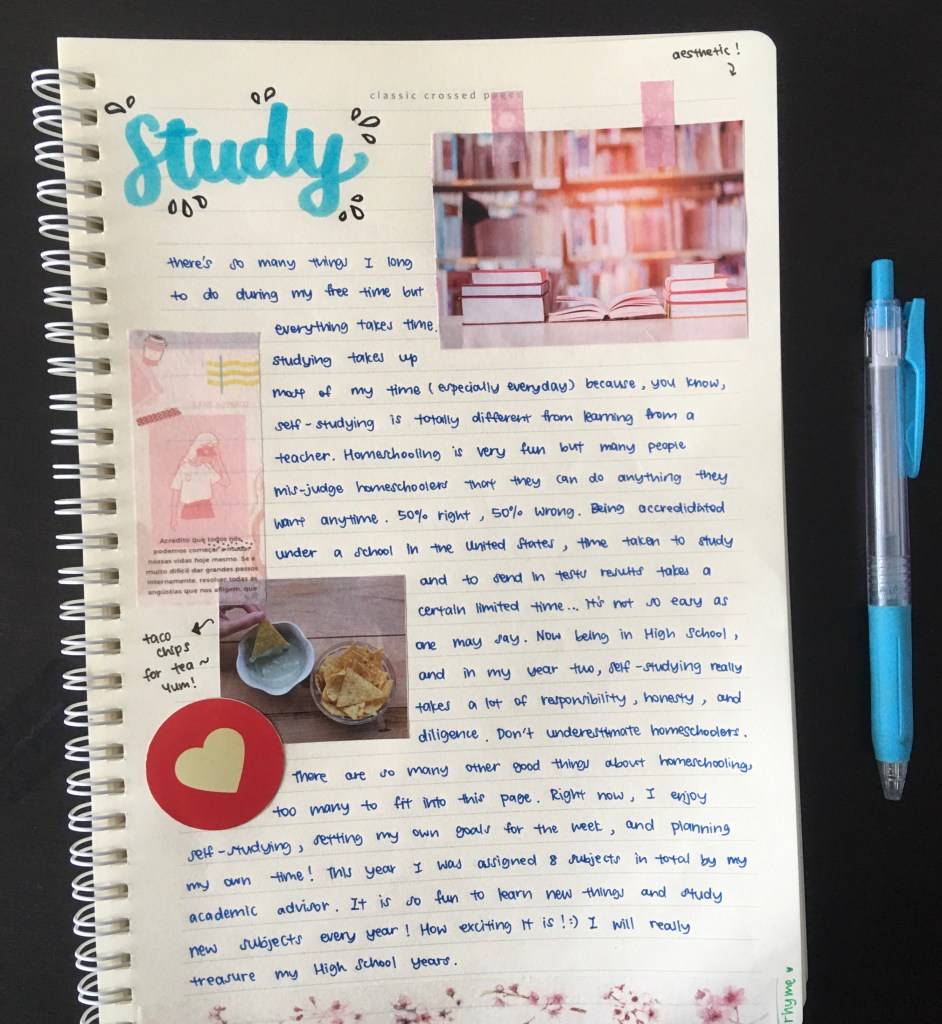 aesthetic!
classic crossed pages
Study
there's so many things I long
to do during my free time but
everything takes time.
studying takes up
most of my time (especially everyday) because, you know,
self-studying is totally different from learning from a
teacher. Homeschooling is very fun but many people
mis-judge homeschoolers that they can do anything they
want anytime. 50% right, 50% wrong. Being accredidated
under a school in the United States, time taken to study
and to send in tests results takes a
certain limited time... It's not so easy as
one may say. Now being in High School,
and in my year two, self-studying really
takes a lot of responsibility, honesty, and
diligence. Don't underestimate homeschoolers.
There are so many other good things about homeschooling,
too many to fit into this page. Right now, I enjoy
self-studying, setting my own goals for the week, and planning
my own time! This year I was assigned 8 subjects in total by my
academic advisor. It is so fun to learn new things and study
new subjects every year! How exciting it is! :) I will really
treasure my High School years.
Acredito que todos nós
podemos começar a mudar
nossas vidas hoje mesmo. Se é
muito difícil dar grandes passos
internamente, resolver todas as
angústias que nos afligem, que
taco
chips
for tea~
yum!
rhyme